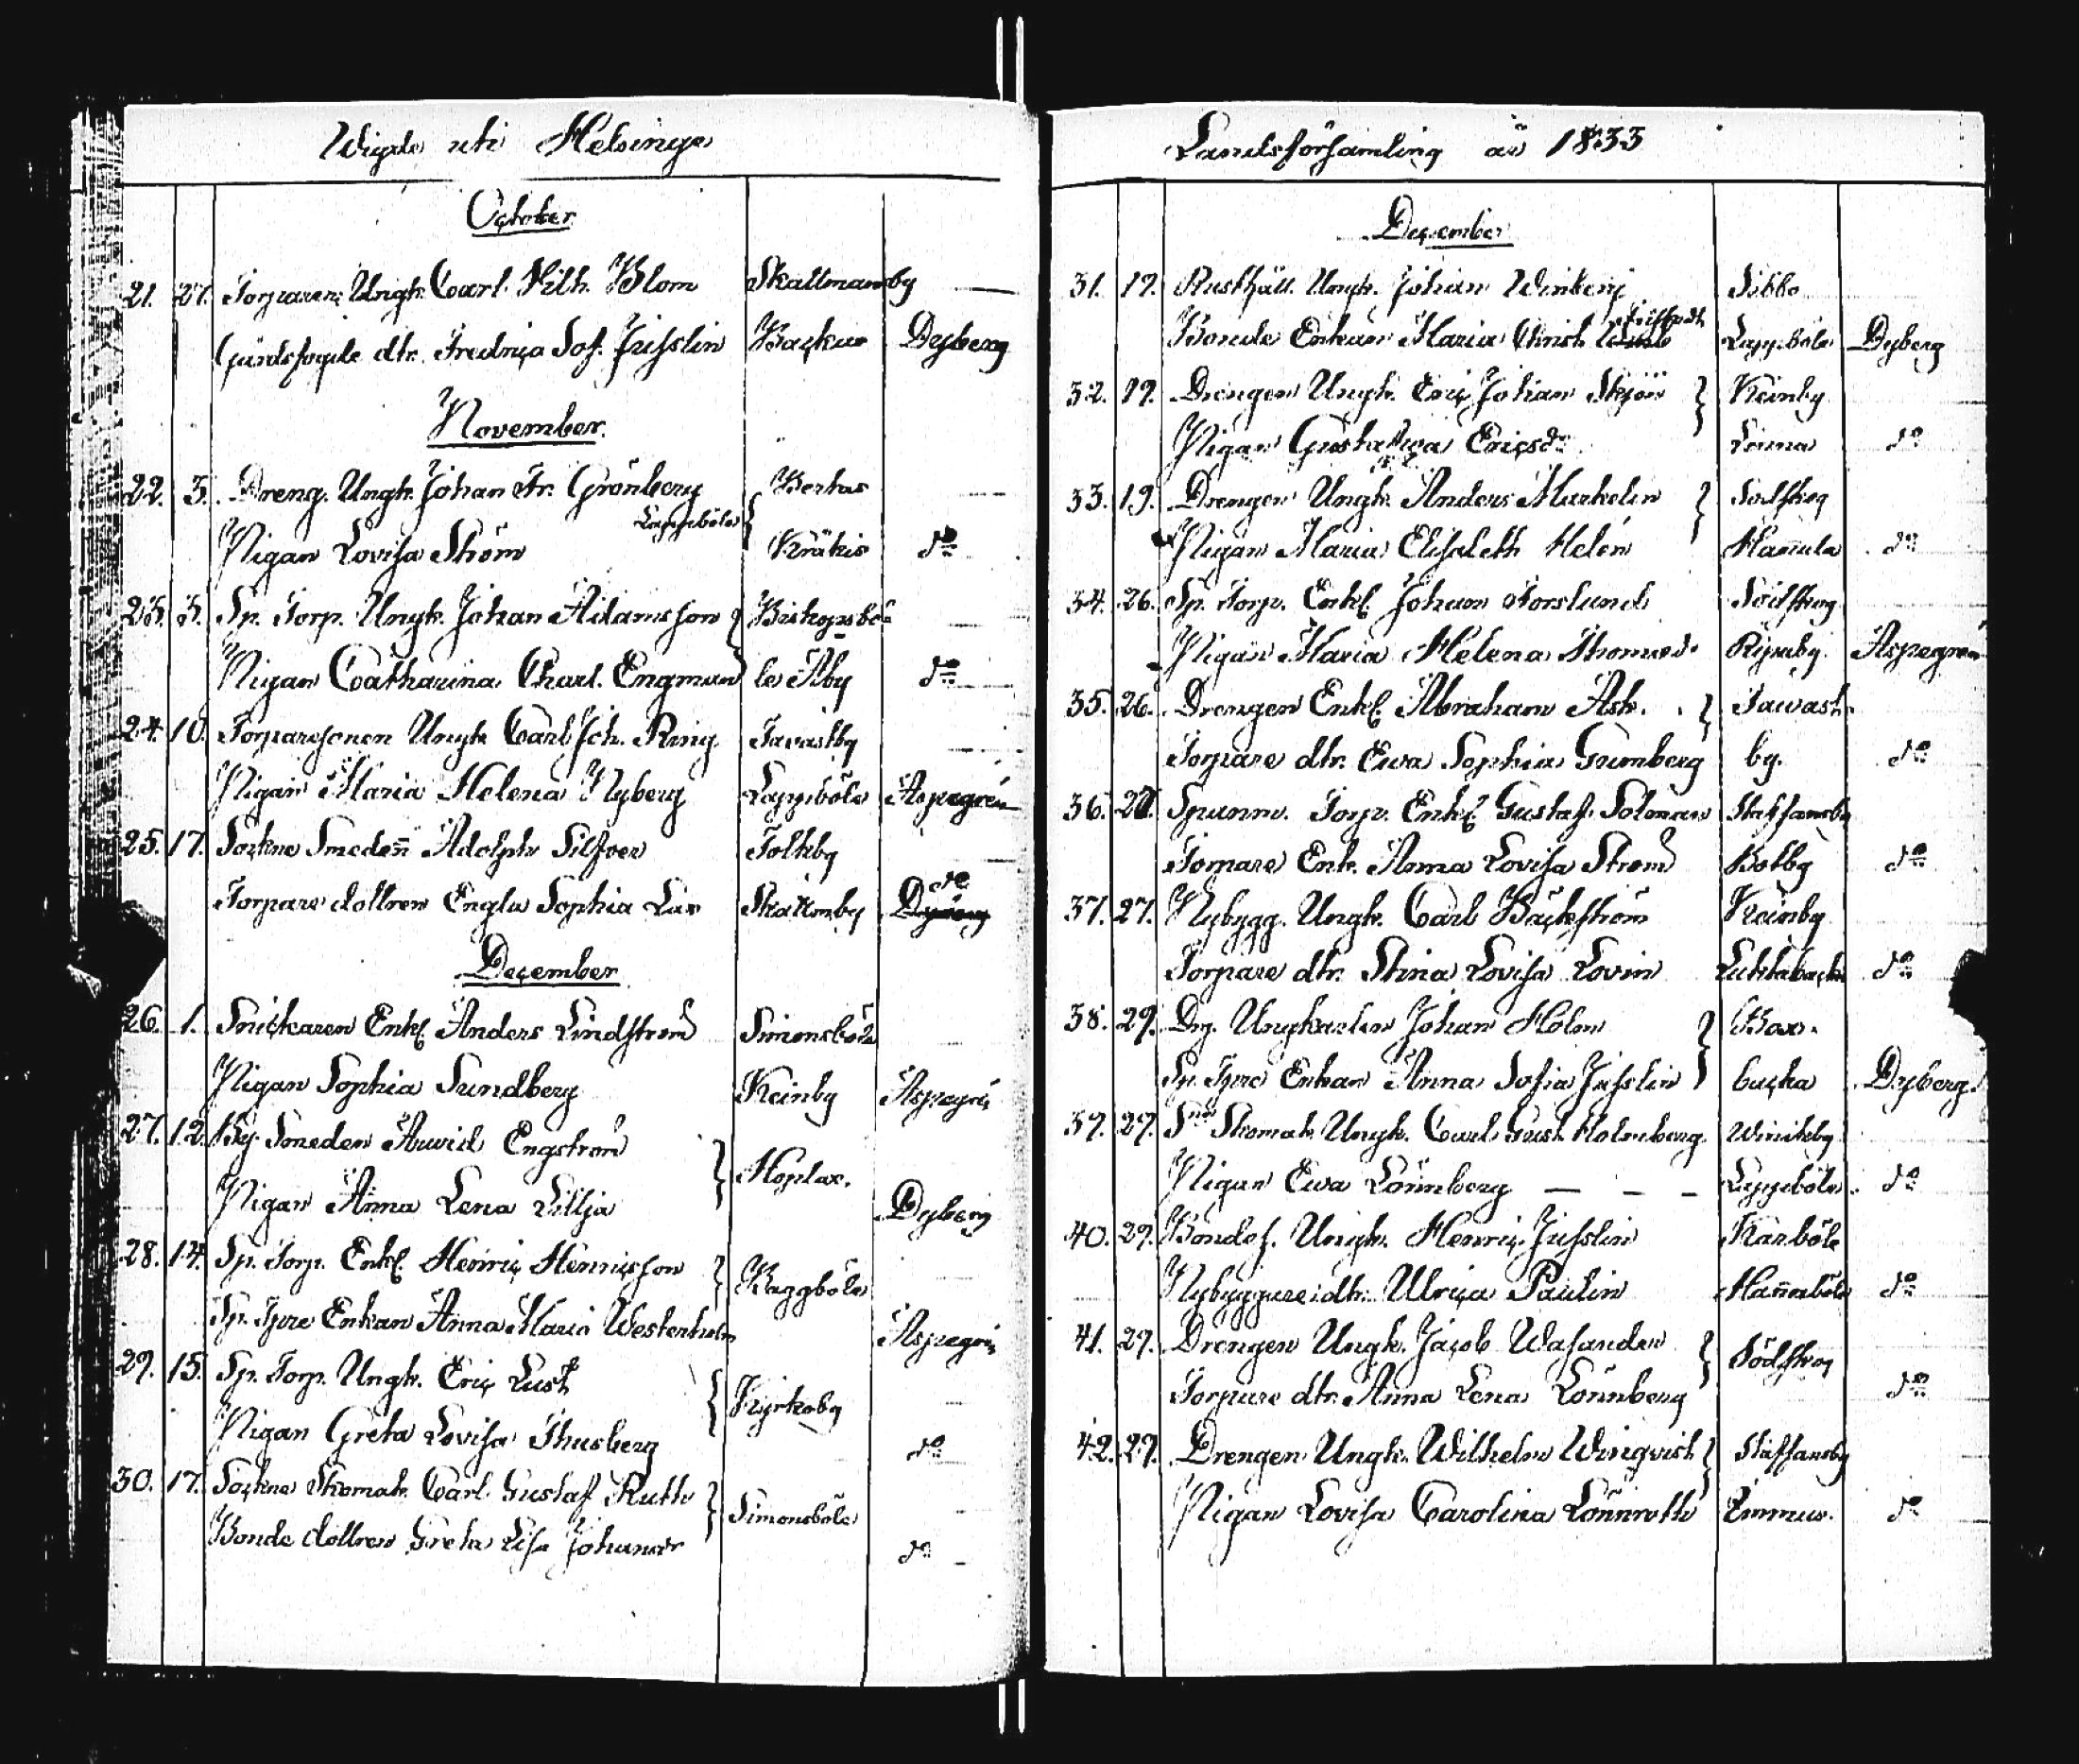 Wigde uti Helsinge
October
21. 27. Torparen Ungk. Carl Wilh. Blom Skattmansby
Gårdsfogde dtr. Fredrica Sof. Jusslin Backas Dyberg
November.
22. 3. Dreng. Ungk. Johan Fr. Grönberg Bertas
Lappböle
Pigan Lovisa Ström Kräkis do
23. 3. Sp. Torp. Ungk. Johan Adamsson Biskopsbö-
Pigan Catharina Charl. Engman le Åby do
24. 10. Torparesonen Ungk. Carl Joh. Ring Tavastby
Pigan Maria Helena Nyberg Lappböle Aspegrén
25. 17. Sockne Smeden Adolph Silfver Tolkby
do
Torpare dottren Engla Sophia Lax Skattmby Dyberg
December
26. 1. Snickaren Enkl. Anders Lindström Simonsböle
Pigan Sophia Sundberg Keinby Aspegrén
27. 12. By Smeden Arvid Engström
Hoplax.
Pigan Anna Lena Lillja Dyberg
28. 14. Sp. Torp. Enkl. Henric Henricsson
Baggböle
Sp. Tpre Enkan Anna Maria Westerholm Aspegrén
29. 15. Sp. Torp. Ungk. Eric Lust
Kyrkoby
Pigan Greta Lovisa Thusberg do
30. 17. Sockne Skomak. Carl Gustaf Ruth
Simonsböle
Bonde dottren Greta Lisa Johansdr do
Landsförsamling år 1833
December
31. 19. Rusthåll. Ungk. Johan Winberg Sibbo
Bonde Enkan Maria Christ. Lappböle Dyberg
32. 19. Drengen Ungk. Eric Johan Skjön Keinby
Pigan Gustafva Ericsdr Linna do
33. 19. Drengen Ungk. Anders Markelin Sodskog
Pigan Maria Elisabeth Helén Hannula do
34. 26. Sp. Torp. Enkl. Johan Forslund Södskog
Pigan Maria Helena Thomasdr Ripuby Aspegrén
35. 26. Drengen Enkl. Abraham Ask. Tawast-
Torpare dtr. Ewa Sophia Grunberg by. do
36. 27. Spannm. Torp. Enkl. Gustaf Soloman Staffansby
Torpare Enk. Anna Lovisa Ström Botby do
37. 27. Nybygg. Ungk. Carl Bäckström Keinby
Torpare dtr. Stina Lovisa Lovin Luhtabacka do
38. 29. Drg. Ungkarlen Johan Holm Box-
Sp. Tpre Enkan Anna Sofia Jusslin backa Dyberg.
39. 29. Sne Skomak. Ungk. Carl Gust. Holmberg Winikby
Pigan Ewa Lönnberg — — — Lappböle. do
40. 29. Bondes. Ungk. Henric Jusslin Kårböle
Nybyggare dtr. Ulrica Paulin Hannaböle do
41. 29. Drengen Ungk. Jacob Wasander
Södskog
Torpare dtr. Anna Lena Lönnberg do
42. 29. Drengen Ungk. Wilhelm Winqvist Staffansby
Pigan Lovisa Carolina Lönnroth do